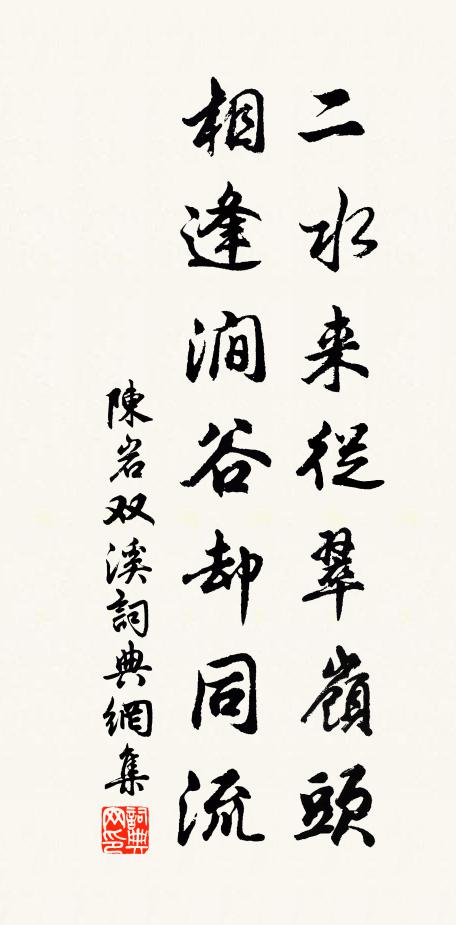 二水来從翠嶺頭
相逢澗谷却同流
陳岩双溪詞典網集
詞典网印